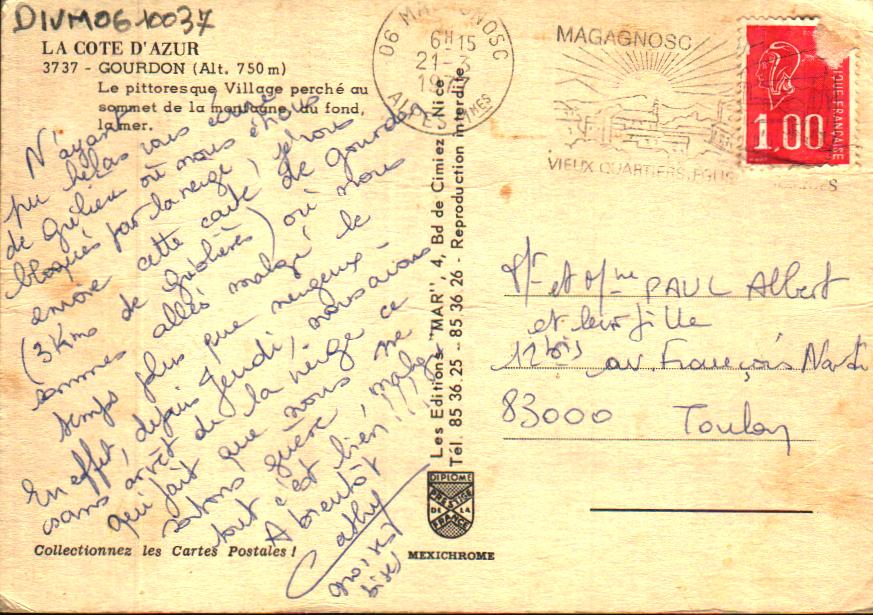 DIVM0610037
LA COTE D'AZUR
3737 - GOURDON (Alt. 750 m)
Le pittoresque Village perché au
sommet de la montagne, au fond,
la mer.
N'ayant
pu hélas vous écrire
de Gréolières où nous étions
bloqués par la neige, je vous
envoie cette carte de Gourdon
(3 Kms de Gréolières) où nous
sommes allés malgré le
temps plus que neigeux -
En effet, depuis Jeudi, nous avons
sans arrêt de la neige ce
qui fait que nous ne
sortons guère, mais
tout c'est bien!!!
A bientôt
Cathy
grosses
bises
Collectionnez les Cartes Postales !
Les Editions "MAR", 4, Bd de Cimiez, Nice
Tél. 85 36.25 - 85 36 26 - Reproduction interdite
DIPLOME
PRESTIGE
DE LA
FRANCE
MEXICHROME
06 MAGAGNOSC
6H15
21-3
ALPES MMES
MAGAGNOSC
VIEUX QUARTIERS, EGLIS
1,00
FRANCAISE
Mr et Mme PAUL Albert
et leur fille
12 bis av. François Nardi
83000 Toulon